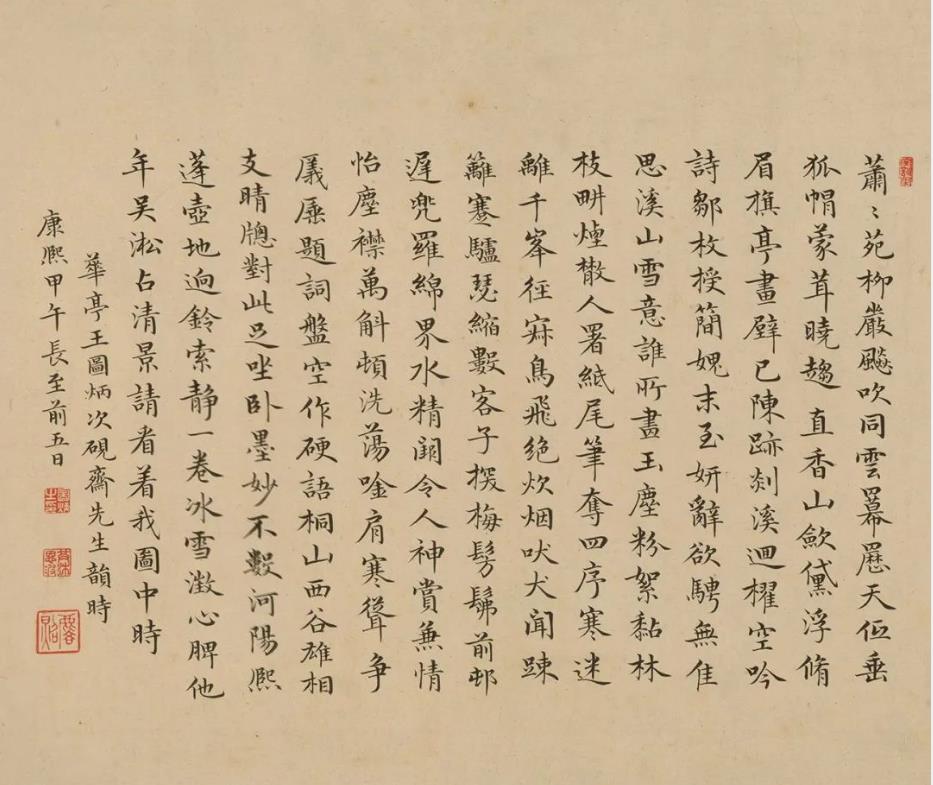 蕭〻苑柳嚴飈吹同雲羃䍥天低垂
狐帽蒙茸曉趨直香山歛黛浮脩
眉旗亭畫壁已陳跡剡溪迴櫂空吟
詩鄒枚授簡媿末至妍辭欲騁無佳
思溪山雪意誰所畫玉塵粉絮黏林
枝畊煙散人署紙尾筆奪四序寒迷
離千峯徑寂鳥飛絶炊烟吠犬聞踈
籬蹇驢瑟縮數客子探梅髣髴前邨
遲兜羅綿界水精闕令人神賞兼情
怡塵襟萬斛頓洗蕩唫肩寒聳爭
題詞盤空作硬語桐山西谷雄相
支晴牕對此足坐卧墨妙不數河陽熙
蓬壺地迥鈴索静一卷冰雪澂心脾他
年吴淞占清景請看着我圖中時
華亭王圖炳次硯齋先生韻時
康熙甲午長至前五日